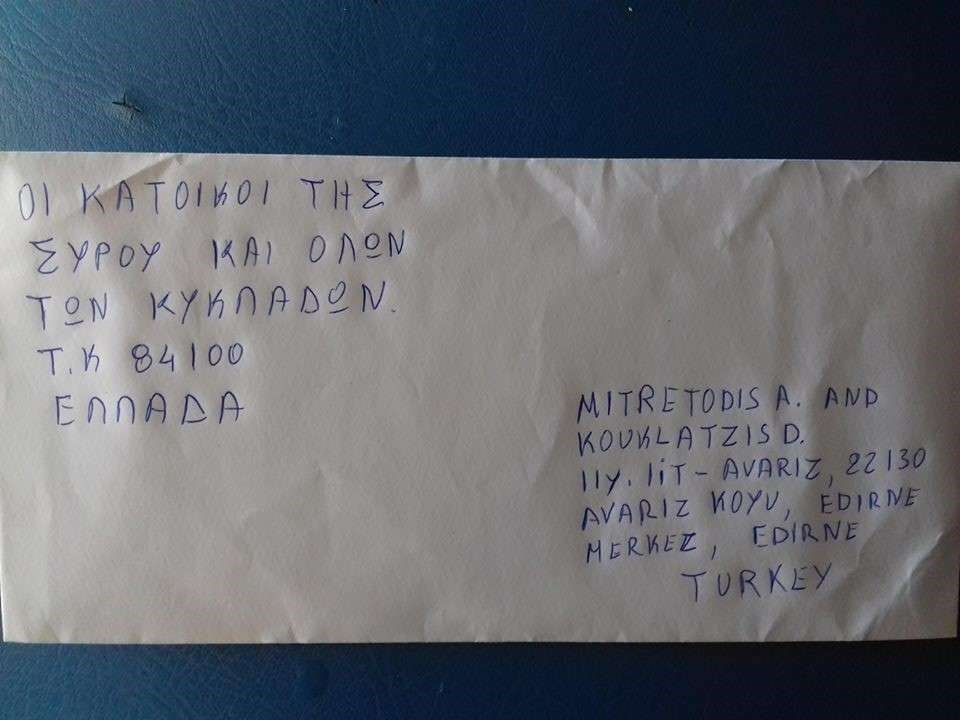 ΟΙ ΚΑΤΟΙΚΟΙ ΤΗΣ
ΣΥΡΟΥ ΚΑΙ ΟΛΩΝ
ΤΩΝ ΚΥΚΛΑΔΩΝ.
Τ.Κ 84100
ΕΛΛΑΔΑ
MITRETODIS A. AND
KOUKLATZIS D.
11y. 1iT - AVARIZ, 22130
AVARIZ KOYU, EDIRNE
MERKEZ, EDIRNE
TURKEY